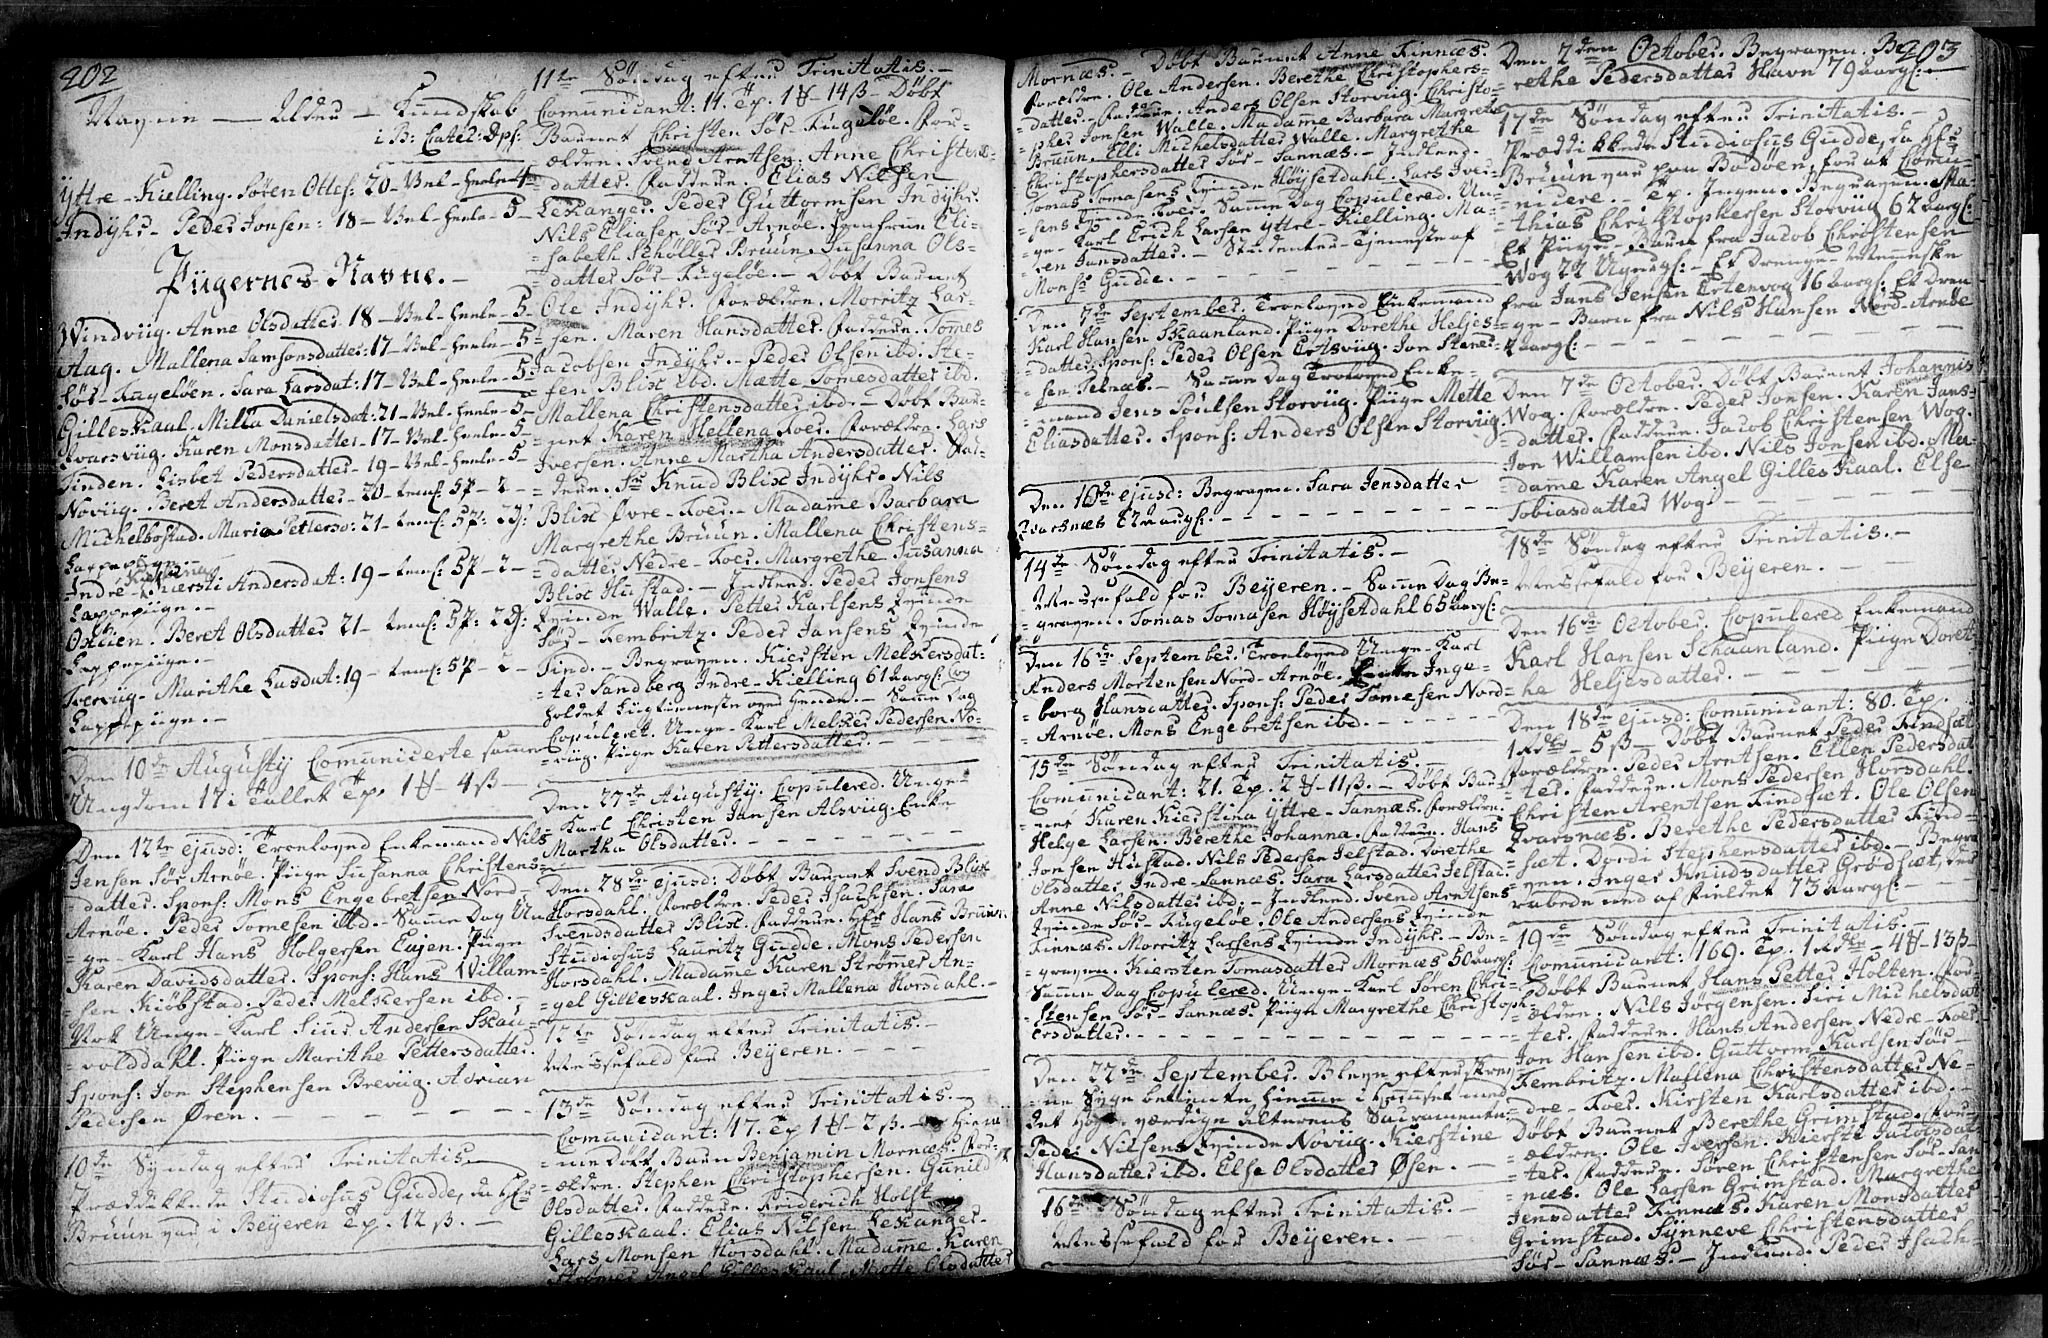 202
Navne — Alder — Kundskab
i B: Catec: Dpf:
Yttre-Kielling. Søren Ottes: 20 - Vel - heele - 4
Indyhr - Peder Jonsen: 18 - Vel - heele - 5
Piigernes Navne. -
Windviig. Anne Olsdatter 18 - Vel - heele - 5
Aag. Mallena Samsonsdatter 17 - Vel - heele - 5
Sør-Fugeløen. Sara Larsdat: 17 - Vel - heele - 5
Gilleskaal. Milla Danielsdat: 21 - Vel - heele - 5
Qvarsviig. Karen Monsdatter 17 - Vel - heele - 5
Finden. Lisbet Pedersdatter - 19 - Vel - heele - 5
Noviig. Beret Andersdatter - 20 - temf: 5 P - 2
Michelbostad. Maria Pettersd: 21 - temf: 5 P: 2 D:
Lappepiige
Indre-Kielling
Kiersti Andersdat: 19 - temf: 5 P - 2
Lappepiige. -
Oxlien. Beret Olsdatter 21 - temf: 5 P: 2 D:
Lappepiige. -
Tverviig. Marithe Lasdat: 19 - temf: 5 P - 2
Lappepiige. -
Den 10de Augusty Comunicerte samme
Ungdom 17 i Tallet Tp. 1 ₰ 4 ß -
Den 12te ejusd: Troeloved Enkemand Nils
Jensen Sør Arnøe. Piige Susanna Christens-
=datter. Spons: Mons Engebretsen Nord-
Arnøe. Peder Tomesen ibd. - Samme Dag Un-
ge-Karl Hans Holgersen Eujen. Piige
Karen Davidsdatter. Spons: Hans Willum-
sen Kiøbstad. Peder Melchersen ibd. -
Nok Unge-Karl Siur Andersen Skau-
=volddahl. Piige Marithe Pettersdatter.
Spons: Jon Stephensen Breviig. Adrian
Pedersen Øren. -
10de Syndag efter Trinitatis.
Præddikede Studiosus Gudde, da Hr
Bruun var i Beyeren Tp. 12 ß. -
11te Søndag efter Trinitatis. -
Comunicant: 11. Tp. 1 ₰ - 14 ß - Døbt
Barnet Christen Sør-Fugeløe. For-
ældre. Svend Arntsen. Anne Christens-
datter. Faddere. Elias Nilsen
Lekanger. Peder Guttormsen Indyhr.
Nils Eliasen Sør-Arnøe. Jomfrue Eli-
=sabeth Schøller Bruun. Susanna Ols-
=datter Sør Fugeløe. - Døbt Barnet
Ole Indyhr. Forældre. Morritz Lar-
=sen. Maren Hansdatter. Faddere. Tomes
Jacobsen Indyhr. - Peder Olsen ibd. Ste-
fen Blix ibd. Mætte Tomesdatter ibd.
Mallena Christensdatter ibd. - Døbt Bar-
=net Karen Hellena Roes. Forældre. Lars
Iversen. Anne Martha Andersdatter. Fad-
=dere. Sr Knud Blix Indyhr. Nils
Blix Øvre-Roes - Madame Barbara
Margrethe Bruun. Mallena Christens-
=datter Nedre-Roes. Margrethe Susanna
Blix Hustad. - Indled: Peder Jonsens
Qvinde Walle. Petter Karlsens Qvinde
Sør-Fembritz. Peder Jansens Qvinde
Tind. - Begraven. Kiersten Melkersdat-
=ter Sandberg Indre-Kielling 61 aargl: Og
holdet Liigtieneste over hende. - Samme Dag
Copuleret. Unge-Karl Melker Pedersen No-
=viig. Piige Karen Pettersdatter. -
Den 27de Augusty. Copulered. Unge-
Karl Christen Jansen Alsviig. Enke
Martha Olsdatter. -
Den 28de ejusd: Døbt Barnet Svend Blix
Horsdahl. Forældre. Peder Isachsen. Sara
Svendsdatter Blix. Faddere. Hr Hans Bruun.
Studiosus Lauritz Gudde. Mons Pedersen
Horsdahl. Madame Karen Strømer An-
=gel Gilleskaal. Inger Mallena Horsdahl. -
12te Søndag efter Trinitatis. -
Messefald for Beyeren. -
13de Søndag efter Trinitatis. -
Comunicant: 17. Tp 1 ₰ - 2 ß. - Hiem-
=medøbt Barn Benjamin Mornæs. For-
=ældre. Stephen Christophersen. Gunild
Olsdatter. Faddere. Friderich Holst
Gilleskaal. Elias Nilsen Lekanger.
Lars Monsen Horsdahl. Madame Karen
Strømer Angel Gilleskaal. Mette Olsdatter
Mornæs. - Døbt Barnet Anne Finnæs.
Forældre. Ole Andersen. Berethe Christophers-
=datter. Faddere. Anders Olsen Storviig. Christo-
=pher Jonsen Walle. Madame Barbara Margrethe
Bruun. Elli Michelsdatter Walle. Margrethe
Christophersdatter Sør-Sannæs. - Indled.
Tomas Tomasens Qvinde Høysetdahl. Lars Iver-
sens Qvinde Roes. Samme Dag Copulered. Un-
=ge-Karl Erich Larsen Yttre-Kielling. Ma-
=ren Jansdatter. - Studenter Tjeneste af
Monsr Gudde. -
Den 7de September. Troeloved Enkemand
Karl Hansen Skaanland. Piige Dorethe Heljes-
=datter. Spons: Peder Olsen Ertsviig. Jon Stenes-
sen Selnæs. - Samme Dag Troeloved Enke-
=mand Jens Poulsen Storviig. Piige Mette
Eliasdatter. Spons: Anders Olsen Storviig.
Den 10de ejusd: Begraven. Sara Jensdatter
Qvarsnæs 82 aargl. -
14de Søndag efter Trinitatis. -
Messefald for Beyeren. - Samme Dag Be-
=graven. Tomas Tomasen Høysetdahl 65 aargl:
Den 16de September. Troeloved Unge-Karl
Anders Mortensen Nord-Arnøe. Inge-
=borg Hansdatter. Spons: Peder Tomesen Nord
Arnøe. Mons Engebretsen ibd. -
15de Søndag efter Trinitatis. -
Comunicant: 21. Tp. 2 ₰ - 11 ß - Døbt Bar-
=net Karen Kierstina Yttre-Sannæs. Forældre.
Helge Larsen. Berethe Johanna. Faddere. Hans
Jonsen Hustad. Nils Pedersen Selstad. Dorethe
Olsdatter Indre-Sannæs. Sara Larsdatter Selstad.
Anne Nilsdatter ibd. - Indled. Svend Arntsens
Qvinde Sør-Fugeløe. Ole Andersens Qvinde
Finnæs. Morritz Larsens Qvinde Indyhr. - Be-
=graven. Kiersten Tomasdatter Mornæs 50 aargl:
Samme Dag Copulered. Unge-Karl Søren Chri-
stensen Sør-Sannæs. Piige Margrethe Christoph-
ersdatter. -
Den 22de September. Bleve efterskrev-
=ne Syge betiente hiemme i Huuset med
det høyværdige Alterens Sacramente.
Peder Nilsens Qvinde Noviig. Kierstine
Hansdatter ibd. Else Olsdatter Øsen. -
16de Søndag efter Trinitatis. -
Messefald for Beyeren. -
203
Den 2den October. Begraven. Be-
rethe Pedersdatter Havn 79 aargl: -
17de Søndag efter Trinitatis. -
Præddikede Studiosus Gudde, da Hr
Bruun var paa Bodøen, for at Comu-
nicere. - Tp. Ingen. Begraven. Ma-
thias Christophersen Storviig 62 aargl:
Et Piige-Barn fra Jacob Christensen
Wog 22 Ugergl: - Et Drenge-Menneske
fra Jens Jensen Ertenvog 16 aargl: Et Dren
ge-Barn fra Nils Hansen Nord-Arnøe
2 aargl: -
Den 7de October. Døbt Barnet Johannis
Wog. Forældre. Peder Jonsen. Karen Jans-
=datter. Faddere. Jacob Christensen Wog.
Jon Willamsen ibd. Nils Jonsen ibd. Ma-
dame Karen Angel Gilleskaal. Else
Tobiasdatter Wog. -
18de Søndag efter Trinitatis. -
Messefald for Beyeren. -
Den 16de October. Copulered Enkemand
Karl Hansen Schaanland. Piige Doret-
=he Heljesdatter. -
Den 18de ejusd: Comunicant: 80. Tp.
1 Rdlr - 5 ß - Døbt Barnet Peder Findsæt.
Forældre. Peder Arntsen. Ellen Pedersdat-
ter. Faddere. Mons Pedersen Horsdahl.
Christen Arentsen Findsæt. Ole Olsen
Qvarsnæs. Berethe Pedersdatter Find-
sæt. Dordi Stephensdatter ibd. - Begra-
ven. Inger Knudsdatter Grødsæt, der
rabede ned af Fieldet 73 aargl: -
19de Søndag efter Trinitatis.
Comunicant: 169. Tp. 1 Rdlr - 4 ₰ - 13 ß -
Døbt Barnet Hans Petter Holten. For-
=ældre. Nils Jørgensen. Siri Michelsdat-
ter. Faddere. Hans Andersen Nedre-Roes.
Jon Hansen ibd. Guttorm Karlsen Sør-
Fembritz. Mallena Christensdatter Ne-
dre-Roes. Kirsten Karlsdatter ibd. -
Døbt Barnet Berethe Grimstad. For-
=ældre. Ole Iversen. Kiersti Jacobsdat-
ter. Faddere. Søren Christensen Sør-San-
næs. Ole Larsen Grimstad. Margrethe
Jensdatter Finnæs. Karen Monsdatter
Grimstad. Synneve Christensdatter
Sør-Sannæs. - Indled. Peder Isach-